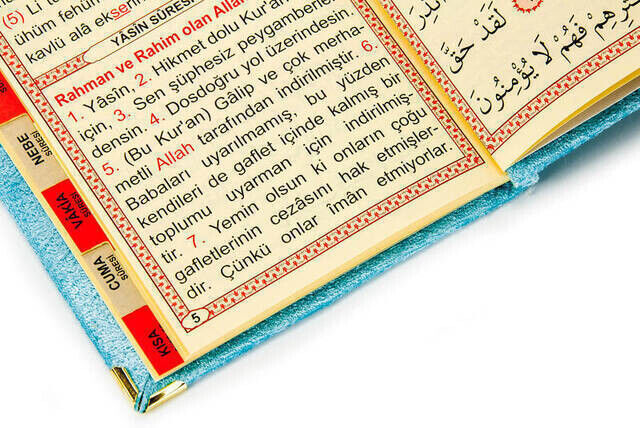 (5) Li t
ühüm fehüm
kavlü alâ ekserih
YÂSİN SÛRESİ
Rahman ve Rahim olan Allah
1. Yâsîn, 2. Hikmet dolu Kur'ân
için, 3. Sen şüphesiz peygamberler
densin. 4. Dosdoğru yol üzerindesin.
5. (Bu Kur'an) Gâlip ve çok merha-
metli Allah tarafından indirilmiştir. 6.
Babaları uyarılmamış, bu yüzden
kendileri de gaflet içinde kalmış bir
toplumu uyarman için indirilmiş-
tir. 7. Yemin olsun ki onların çoğu
gafletlerinin cezâsını hak etmişler-
dir. Çünkü onlar imân etmiyorlar.
5
NEBE
SÛRESİ
VÂKIA
SÛRESİ
CUMA
SÛRESİ
KISA
لَقَدْ حَقَّ
فَهُمْ لَا يُؤْمِنُونَ